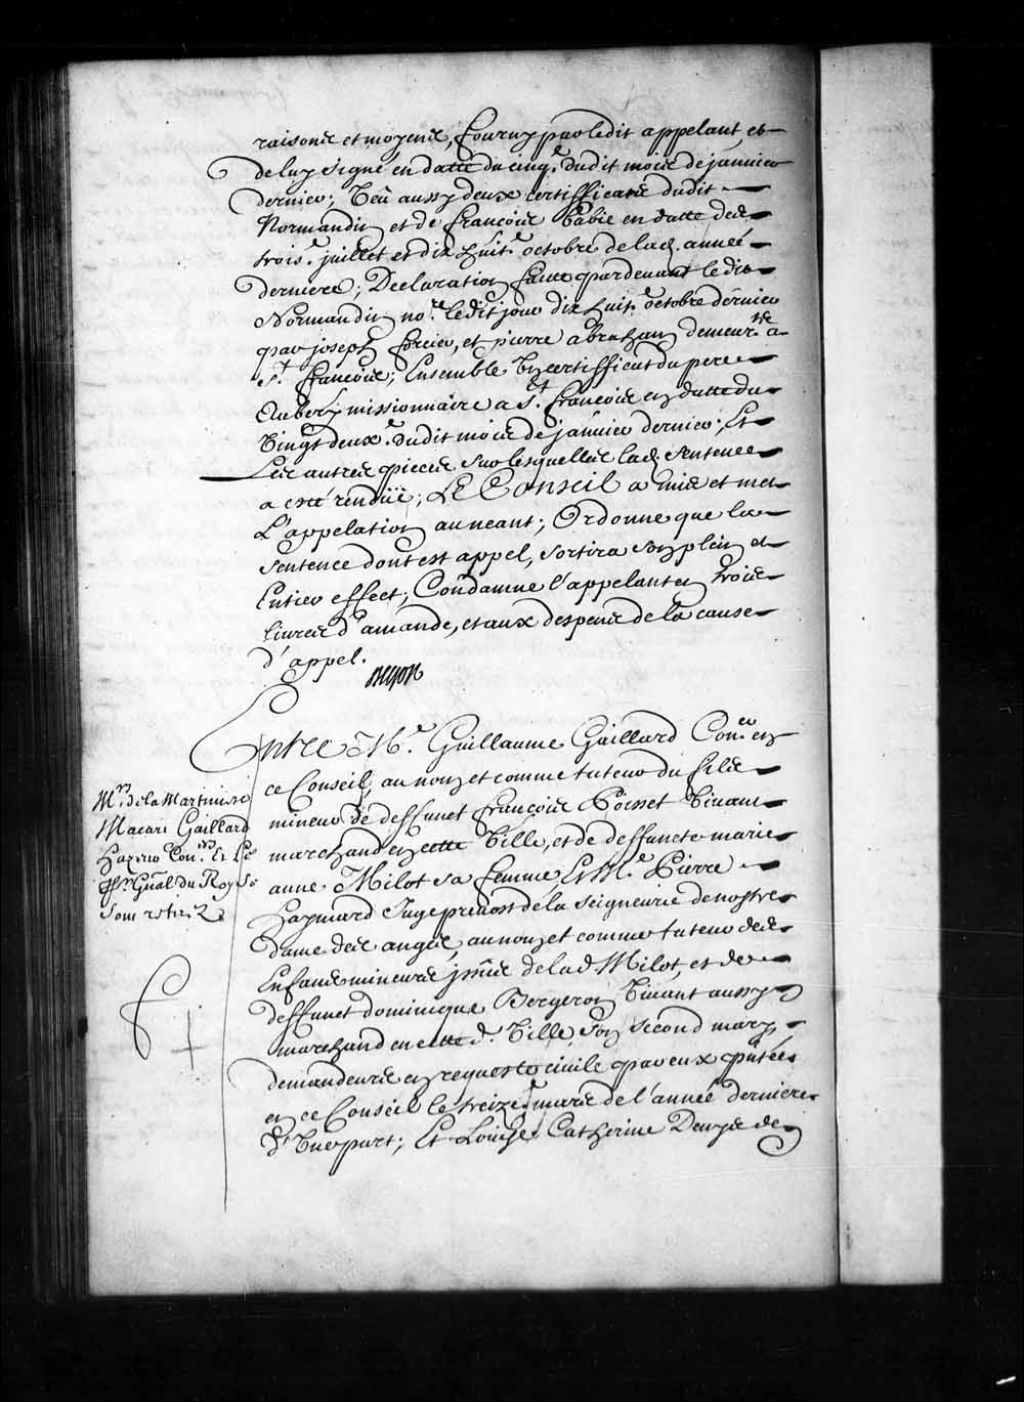 raisons et moyens, fourny par ledit appelant et
de luy signé en datte du cinq.e dudit mois de janvier
dernier; Veu aussy deux certifficats dudit
Normandin et de françois Babie en datte des
trois.e juillet et dix huit.e octobre de lad. année
derniere; Declaration faite pardevant ledit
Normandin no.re ledit jour dix huit.e octobre dernier
par joseph forcier, et pierre abraham demeur.ts a
s.t françois; Ensemble un certifficat du pere
Aubery missionnaire a s.t françois en datte du
vingt deux.e dudit mois de janvier dernier; Et
Les autres pieces sur lesquelles lad. sentence
a esté rendüe; LE Conseil a mis et met
L'appelation au neant; Ordonne que la
sentence dont est appel, sortira son plein et
Entier effect; Condamne l'appelant en trois
livres d'amande, et aux despens de la cause
d'appel.
Begon
Entre M.e Guillaume Gaillard Con.er en
ce Conseil, au nom et comme tuteur du fils
mineur de deffunct françois Poisset vivant
marchand en cette ville, et de deffuncte marie
anne Milot sa femme, Et M.e Pierre
haymard Juge prevost de la seigneurie de nostre
dame des anges, au nom et comme tuteur des
Enfans mineurs jssus de lad. Milot, et de
deffunct dominique Bergeron vivant aussy
marchand en cette d. ville, son second mary
demandeurs en requeste civile par eux p̃ntée
en ce Conseil le treize.e mars de l'année derniere
d'une part; Et Louise Catherine Denys de
M.rs de la Martiniere
Macart Gaillard
hazeur Con.ers Et Le
Gñal du Roy se
sont retirez